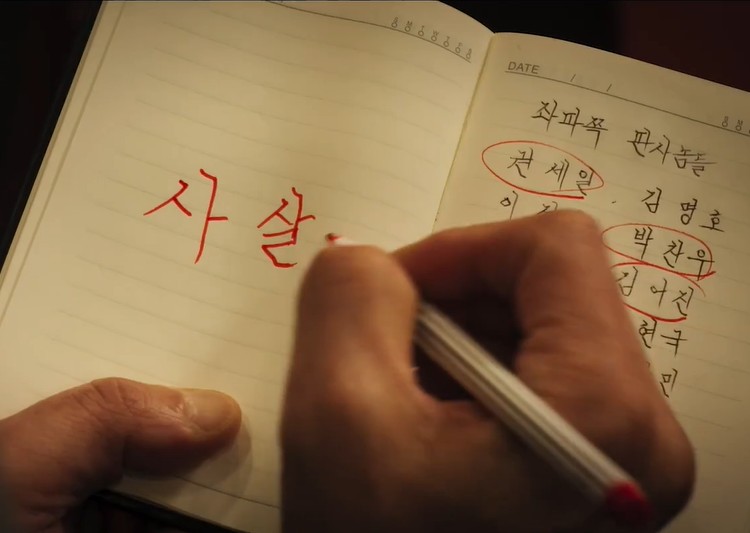 사살
DATE / /
좌파쪽 판사놈들
권세일
김영호
박찬우
김어진
현국
민